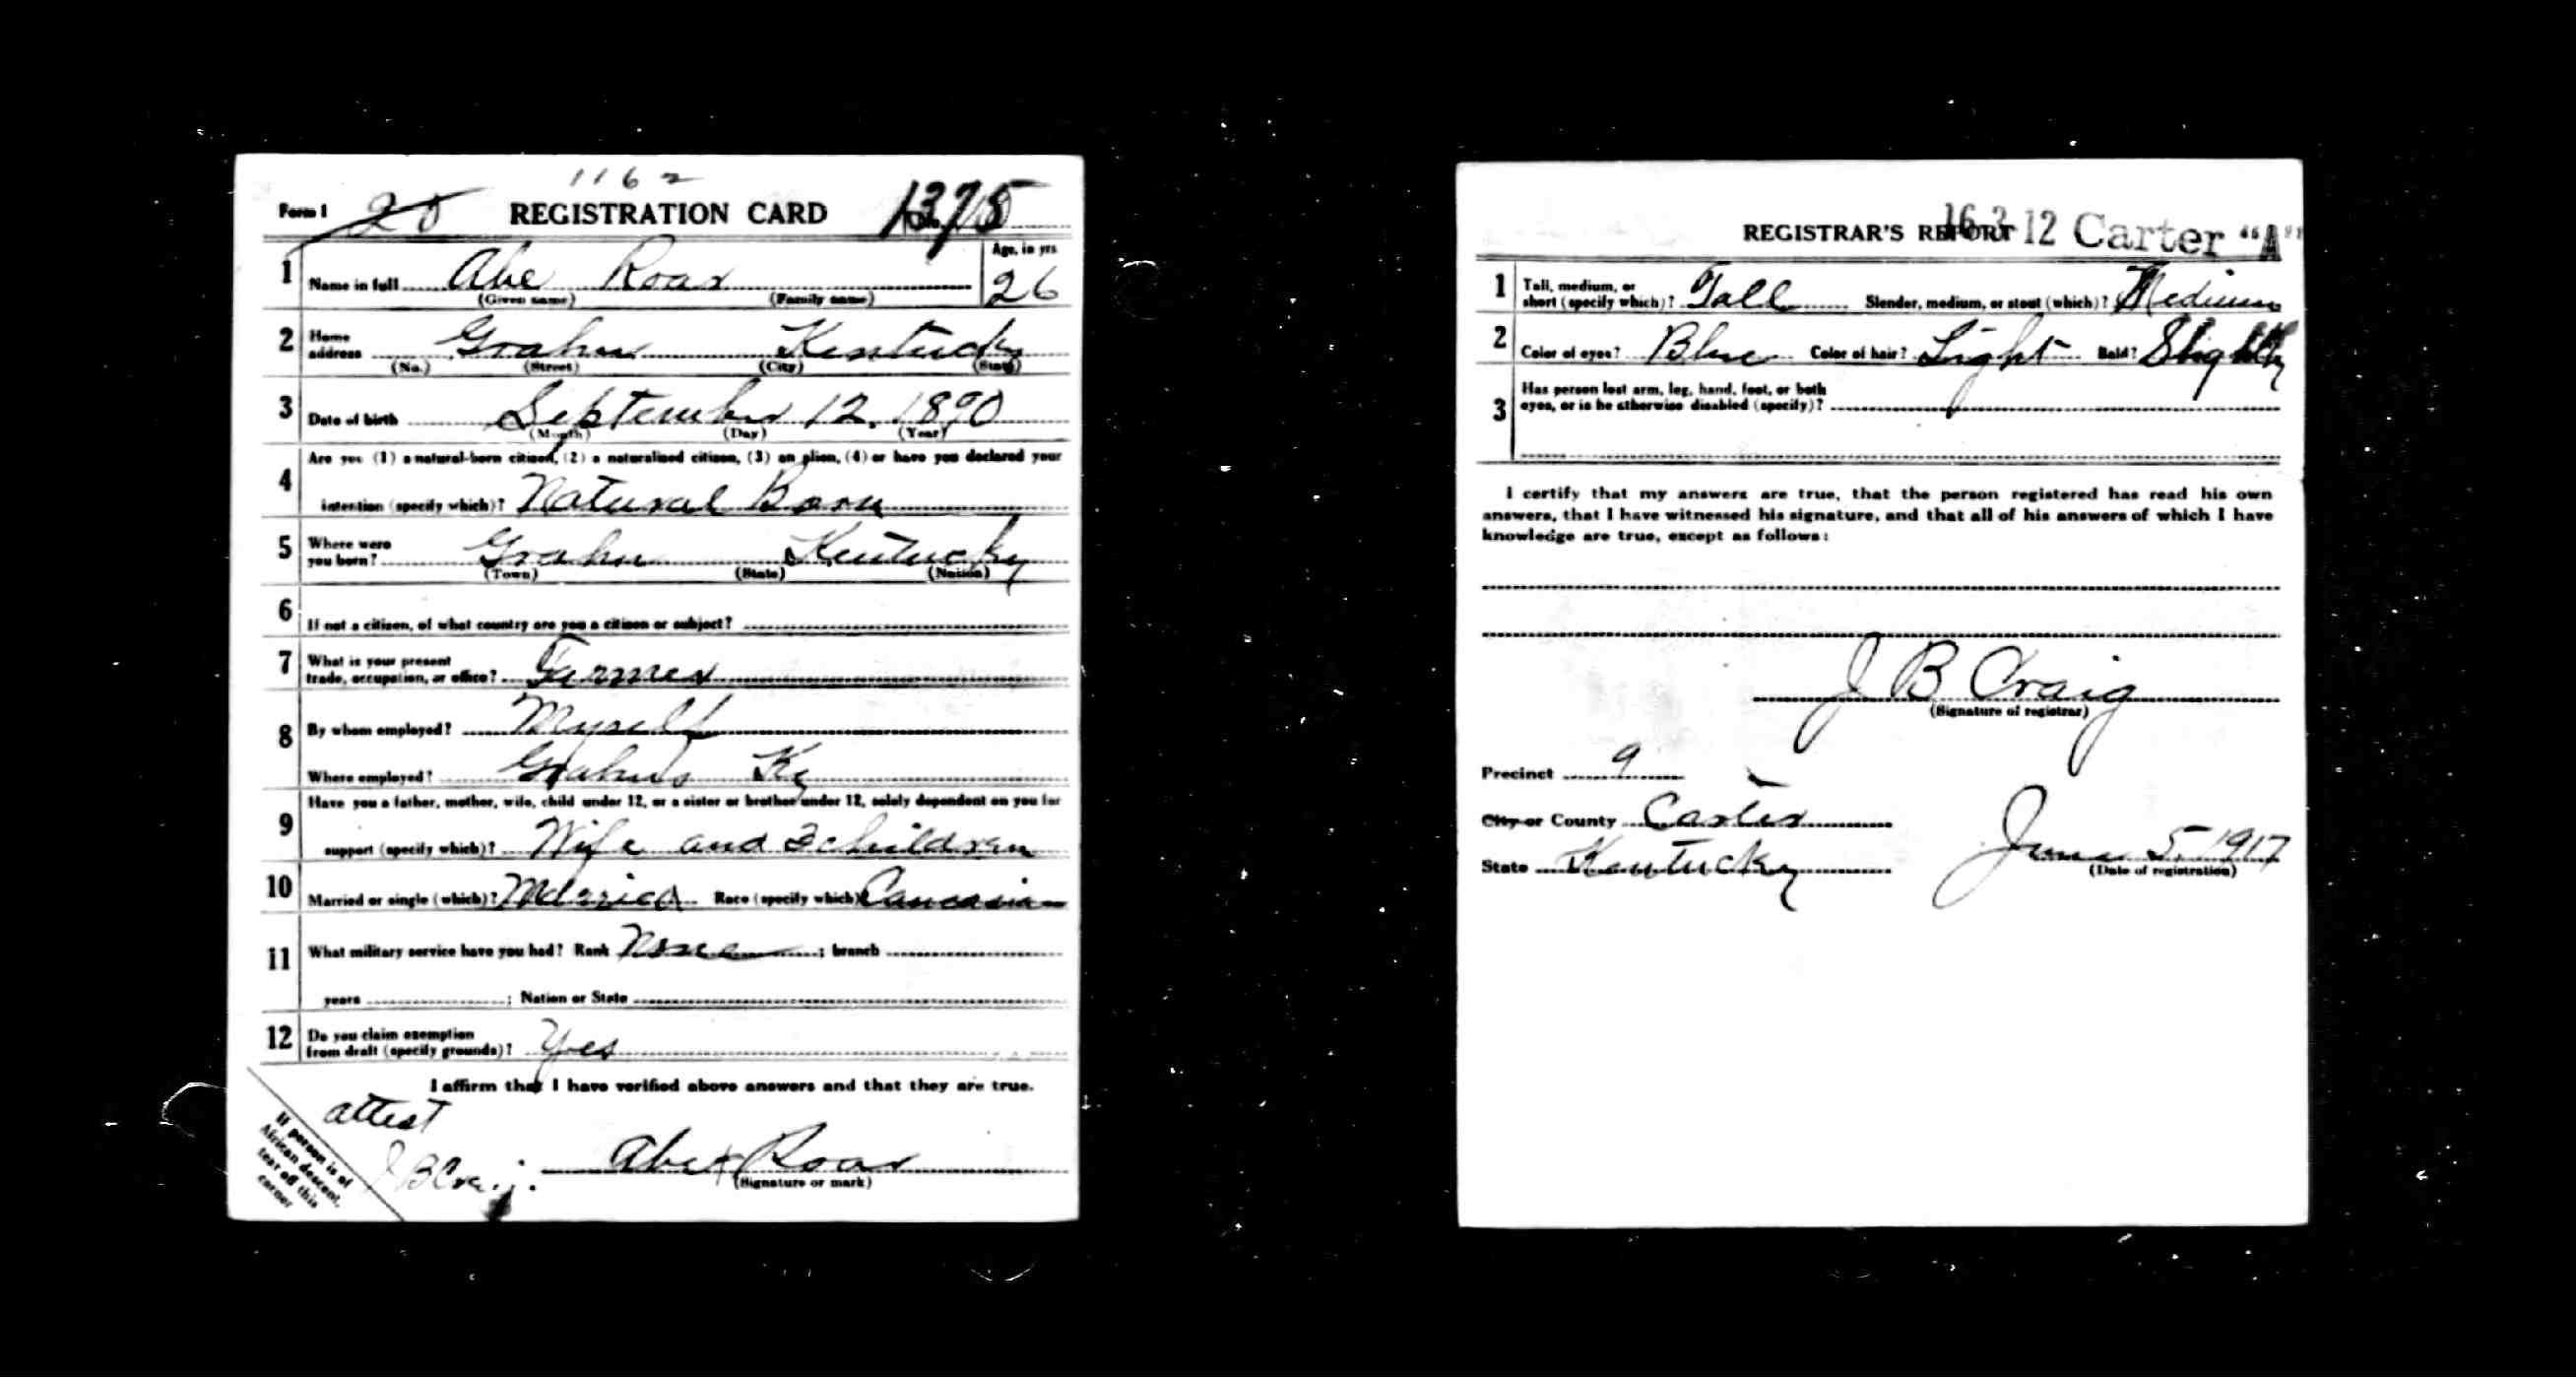 1162
Form 1 20 REGISTRATION CARD 1375
1 Name in full Abe Roar Age, in yrs 26
(Given name) (Family name)
2 Home address Grahn Kentucky
(No.) (Street) (City) (State)
3 Date of birth September 12, 1890
(Month) (Day) (Year)
4 Are you (1) a natural-born citizen, (2) a naturalized citizen, (3) an alien, (4) or have you declared your
intention (specify which)? Natural Born
5 Where were you born? Grahn Kentucky
(Town) (State) (Nation)
6 If not a citizen, of what country are you a citizen or subject?
7 What is your present
trade, occupation, or office? Farmer
8 By whom employed? Myself
Where employed? Grahn Ky
9 Have you a father, mother, wife, child under 12, or a sister or brother under 12, solely dependent on you for
support (specify which)? Wife and children
10 Married or single (which)? Married Race (specify which)? Caucasian
11 What military service have you had? Rank None ; branch
years ; Nation or State
12 Do you claim exemption
from draft (specify grounds)? Yes
I affirm that I have verified above answers and that they are true.
attest
J B Craig. Abe x Roar
(Signature or mark)
If person is of
African descent,
tear off this
corner
REGISTRAR'S REPORT 16 3 12 Carter "A"
1 Tall, medium, or
short (specify which)? Tall Slender, medium, or stout (which)? Medium
2 Color of eyes? Blue Color of hair? Light Bald? Slightly
3 Has person lost arm, leg, hand, foot, or both
eyes, or is he otherwise disabled (specify)?
I certify that my answers are true, that the person registered has read his own
answers, that I have witnessed his signature, and that all of his answers of which I have
knowledge are true, except as follows:
J B Craig
(Signature of registrar)
Precinct 9
City or County Carter
State Kentucky June 5 1917
(Date of registration)